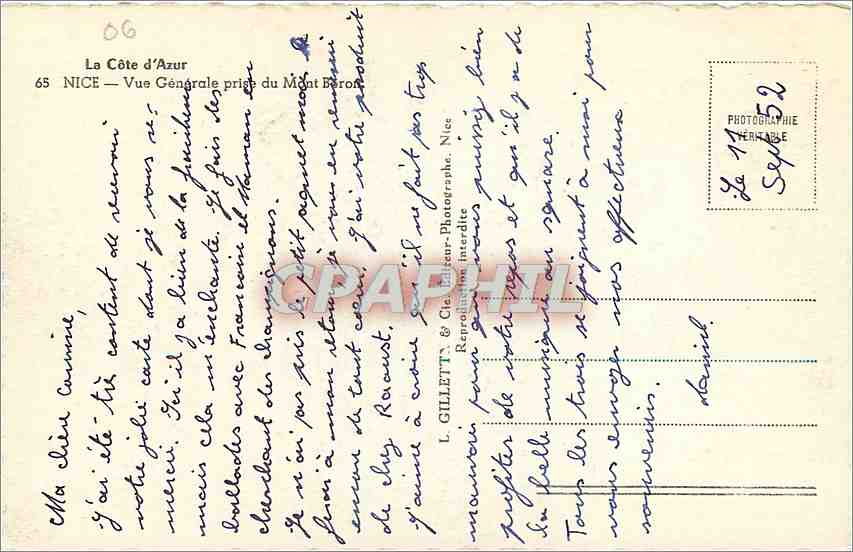 06
La Côte d'Azur
65 NICE — Vue Générale prise du Mont Boron
PHOTOGRAPHIE
VÉRITABLE
Le 11
Sept 52
Ma chère
J'ai été très content de recevoir
votre jolie carte dont je vous re-
mercie. Ici il y a bien de la
mais cela m'enchante. Je fais des
ballades avec Francoise et Maman en
cherchant des champignons.
Je n'ai pas pris le petit mais
à mon retour je vous en remercie
encore de tout coeur. J'ai votre produit
de chez
J'aime à croire qu'il ne fait pas trop
mauvais pour que vous puissiez bien
profiter de votre repos et qu'il y a de
la belle musique au square.
Tous les trois se joignent à moi pour
vous envoyer nos affectueux
souvenirs.
Daniel.
L. GILLETTA & Cie, Editeur-Photographe, Nice
Reproduction interdite
CPAPHIL